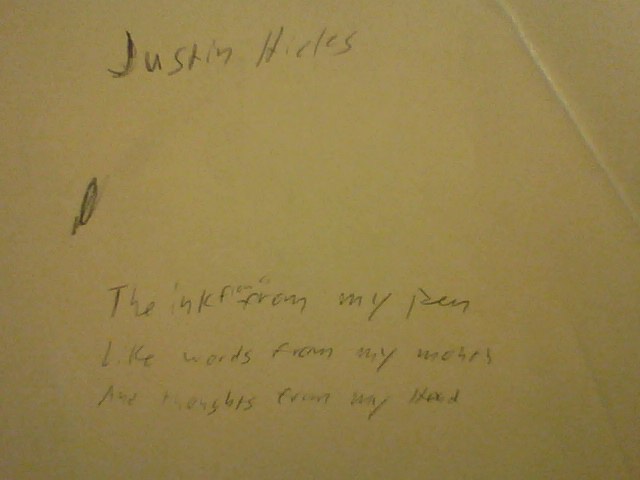 Justin Hicks
The ink from my pen
Like words from my mouth
And thoughts from my Head